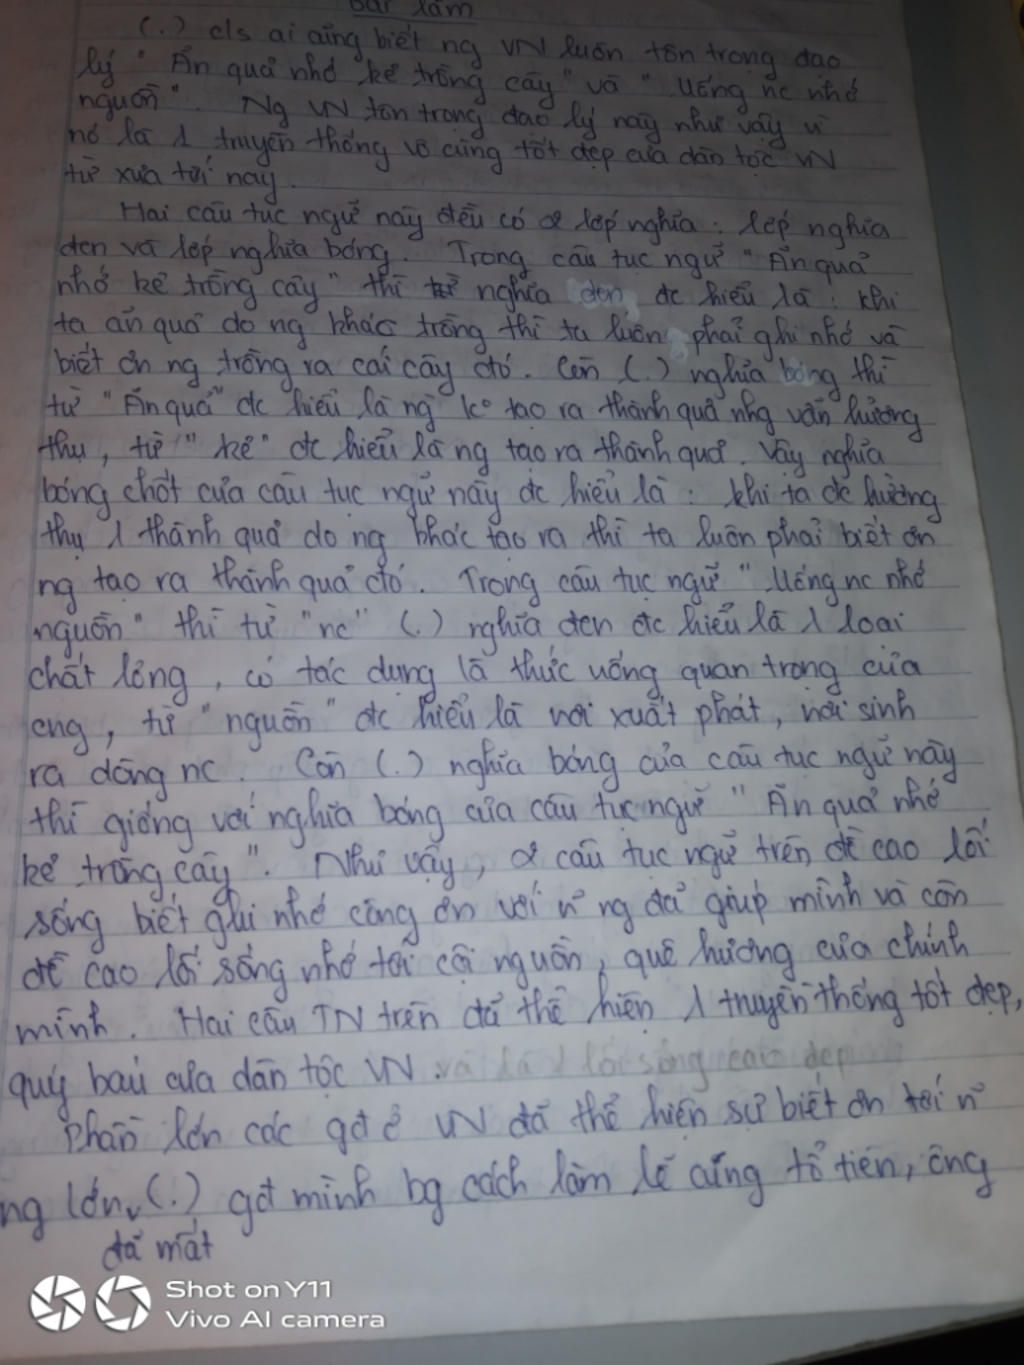 Bài làm
(.) c/s ai cũng biết ng VN luôn tôn trọng đạo
lý " Ăn quả nhớ kẻ trồng cây " và " Uống nc nhớ
nguồn ". Ng VN tôn trọng đạo lý này như vậy vì
nó là 1 truyền thống vô cùng tốt đẹp của dân tộc VN
từ xưa tới nay.
Hai câu tục ngữ này đều có 2 lớp nghĩa : lớp nghĩa
đen và lớp nghĩa bóng. Trong câu tục ngữ " Ăn quả
nhớ kẻ trồng cây " thì nghĩa đen đc hiểu là : khi
ta ăn quả do ng khác trồng thì ta luôn phải ghi nhớ và
biết ơn ng trồng ra cái cây đó. Còn (.) nghĩa bóng thì
từ " Ăn quả " đc hiểu là ng ko tạo ra thành quả nhg vẫn hưởng
thụ, từ " kẻ " đc hiểu là ng tạo ra thành quả. Vậy nghĩa
bóng chốt của câu tục ngữ này đc hiểu là : khi ta đc hưởng
thụ 1 thành quả do ng khác tạo ra thì ta luôn phải biết ơn
ng tạo ra thành quả đó. Trong câu tục ngữ " Uống nc nhớ
nguồn " thì từ " nc " (.) nghĩa đen đc hiểu là 1 loại
chất lỏng, có tác dụng là thức uống quan trọng của
cng, từ " nguồn " đc hiểu là nơi xuất phát, nơi sinh
ra dòng nc. Còn (.) nghĩa bóng của câu tục ngữ này
thì giống với nghĩa bóng của câu tục ngữ " Ăn quả nhớ
kẻ trồng cây ". Như vậy, 2 câu tục ngữ trên đề cao lối
sống biết ghi nhớ công ơn với n~ ng đã giúp mình và còn
đề cao lối sống nhớ tới cội nguồn, quê hương của chính
mình. Hai câu TN trên đã thể hiện 1 truyền thống tốt đẹp,
quý báu của dân tộc VN. và là 1 lối sống cao đẹp
Phần lớn các gđ ở VN đã thể hiện sự biết ơn tới n~
ng lớn (.) gđ mình bg cách làm lễ cúng tổ tiên, ông
đã mất
Shot on Y11
Vivo AI camera